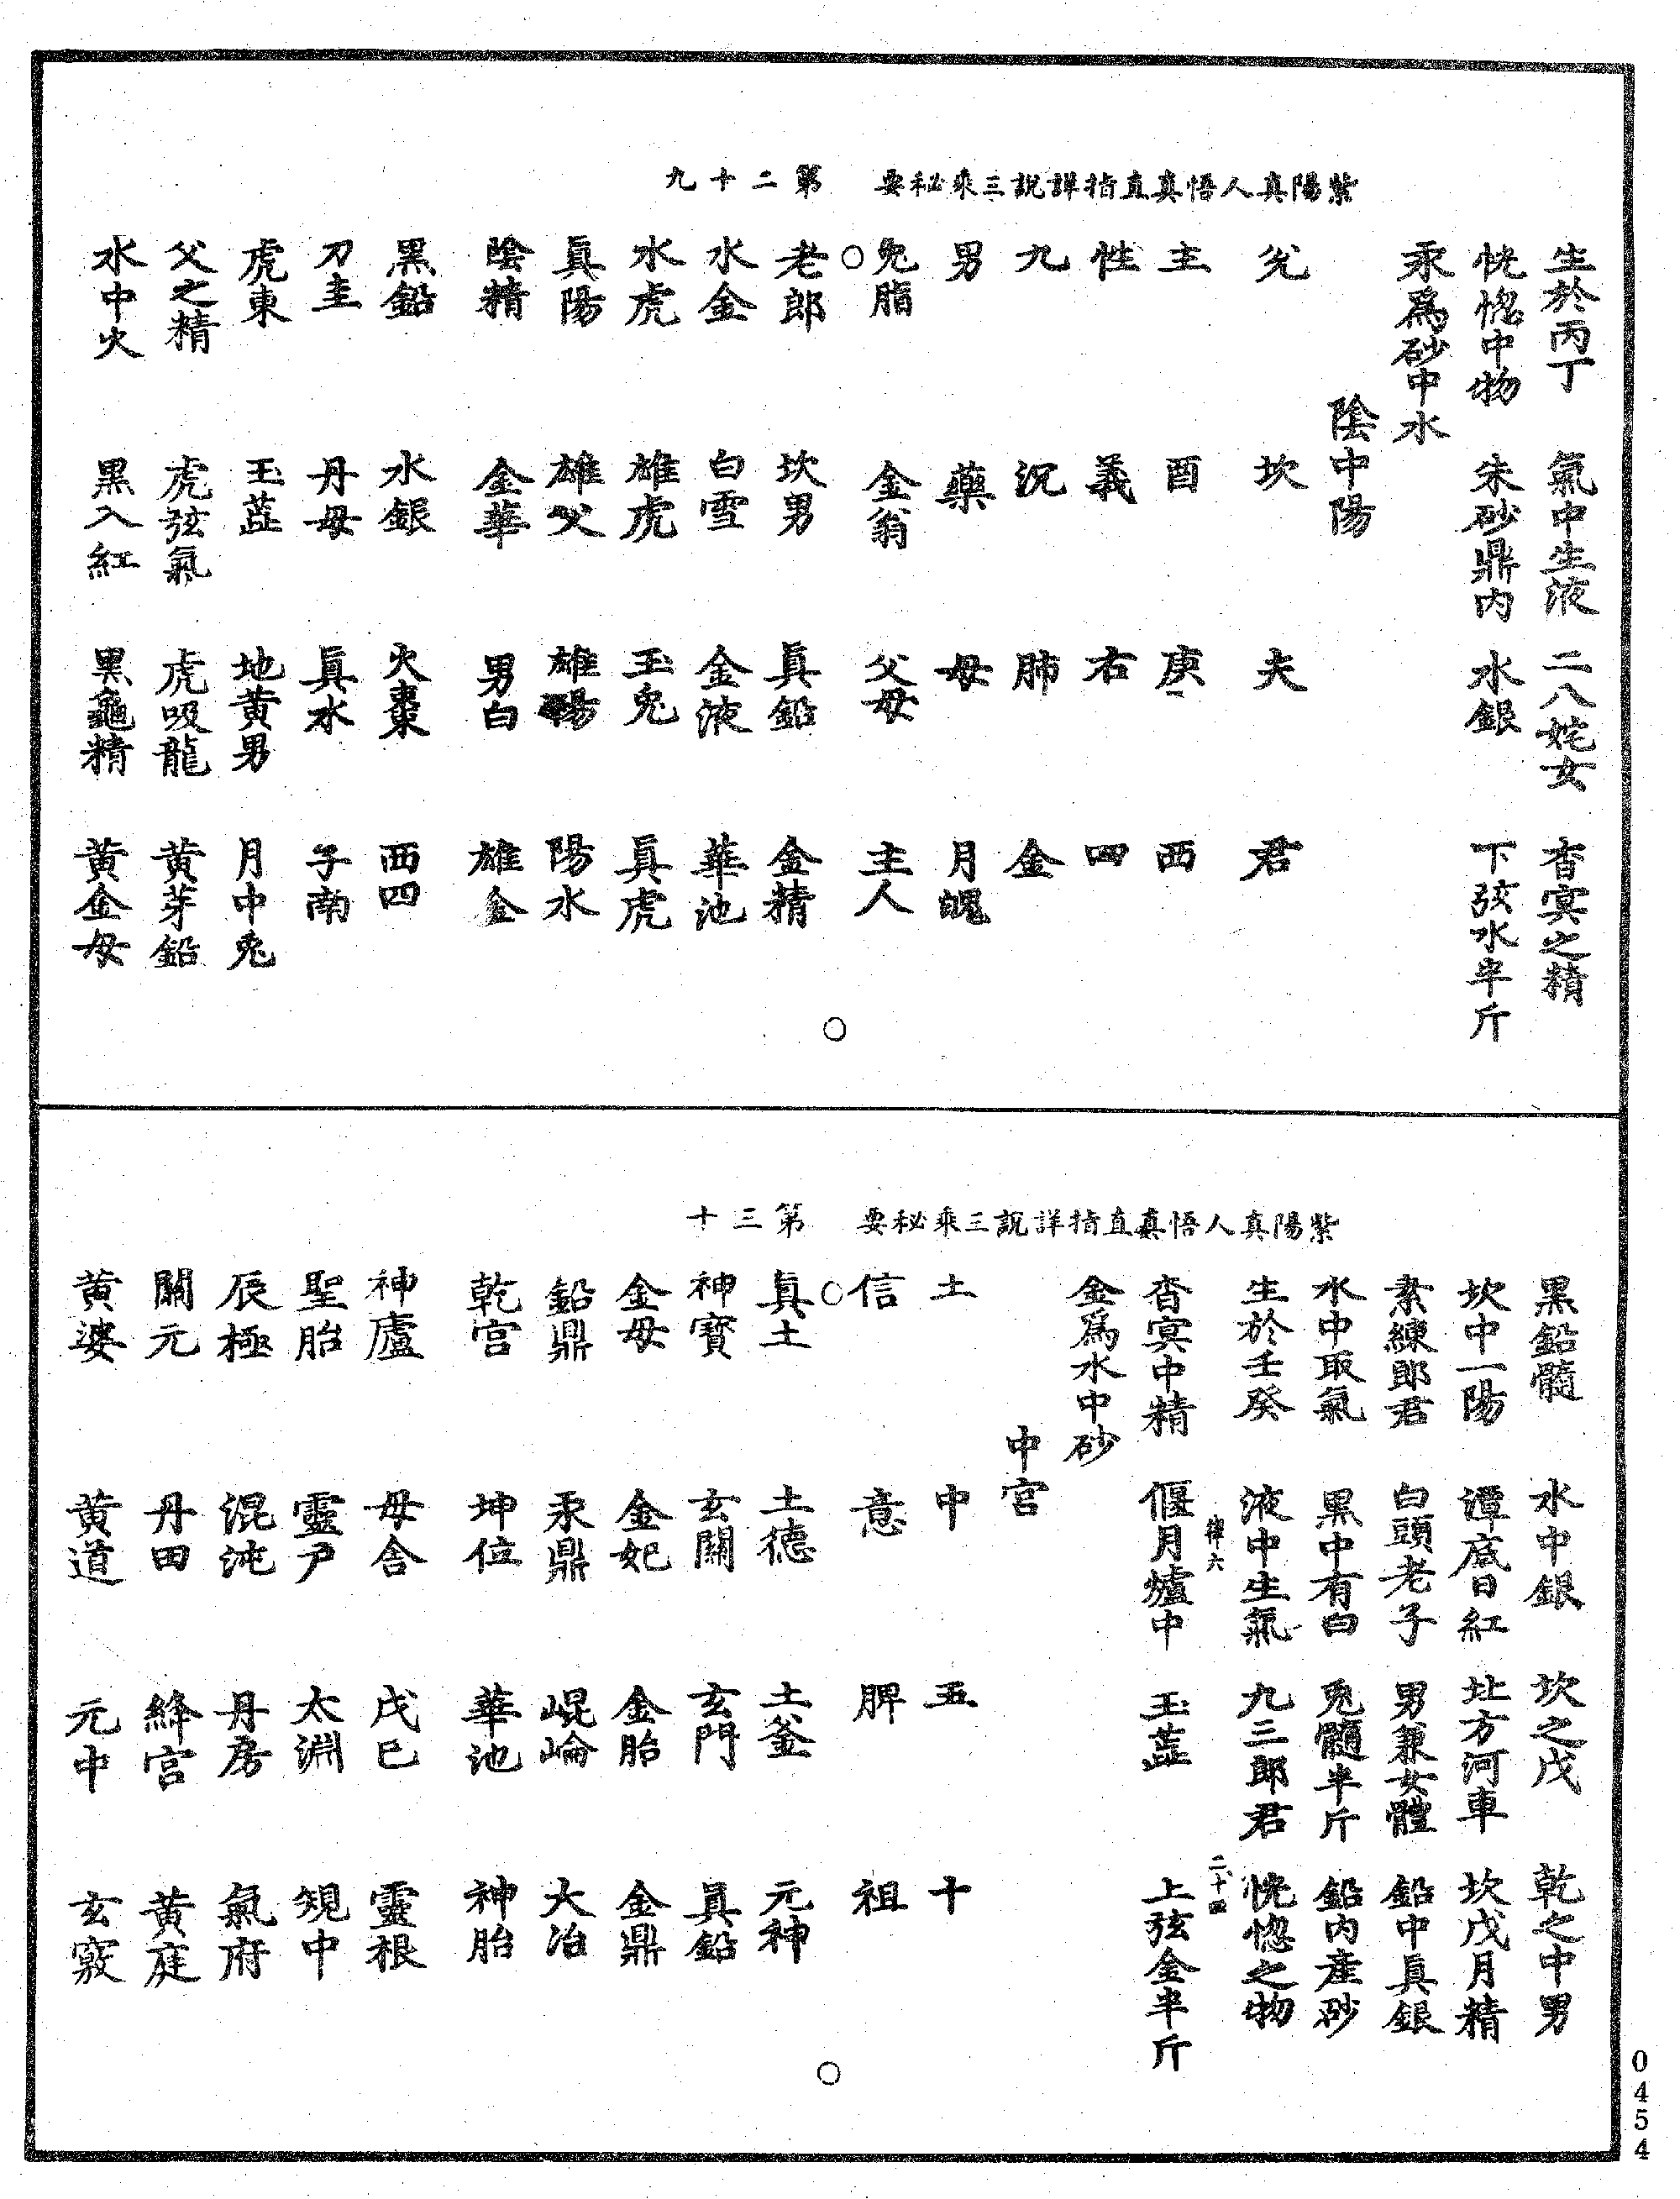 紫陽真人悟真直指詳說三乘秘要　第二十九
生於丙丁　氣中生液　二八姹女　杳冥之精
恍惚中物　朱砂鼎内　水銀　下弦水半斤
汞為砂中水
陰中陽
兊　坎　夫　君
主　酉　庚　西
性　義　右　四
九　沉　肺　金
男　藥　母　月魄
兔脂　金翁　父母　主人
○
老郎　坎男　眞鉛　金精
水金　白雪　金液　華池
水虎　雄虎　玉兔　眞虎
眞陽　雄父　雄陽　陽水
陰精　金華　男白　雄金
黑鉛　水銀　火棗　西四
刀圭　丹母　眞水　子南
虎東　玉蘂　地黃男　月中兎
父之精　虎弦氣　虎吸龍　黃芽鉛
水中火　黑入紅　黑龜精　黃金母
○
紫陽真人悟真直指詳說三乘秘要　第三十
黑鉛髓　水中銀　坎之戊　乾之中男
坎中一陽　潭底日紅　北方河車　坎戊月精
素練郎君　白頭老子　男兼女體　鉛中眞銀
水中取氣　黑中有白　兎髓半斤　鉛内產砂
生於壬癸　液中生氣　九三郎君　恍惚之物
律六　二十四
杳冥中精　偃月爐中　玉蘂　上弦金半斤
金爲水中砂
中宫
土　中　五　十
信　意　脾　祖
○
眞土　土德　土釜　元神
神寶　玄關　玄門　眞鉛
金母　金妃　金胎　金鼎
鉛鼎　汞鼎　崐崘　大冶
乾宫　坤位　華池　神胎
神廬　母舍　戊己　靈根
聖胎　靈戸　太淵　規中
辰極　混沌　丹房　氣府
關元　丹田　絳宫　黃庭
黃婆　黃道　元中　玄竅
○
0454